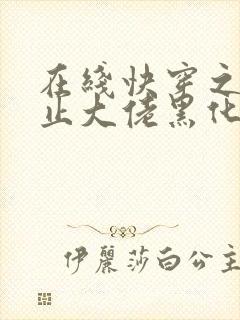 在线快穿之
止大佬黑化
伊丽莎白公主